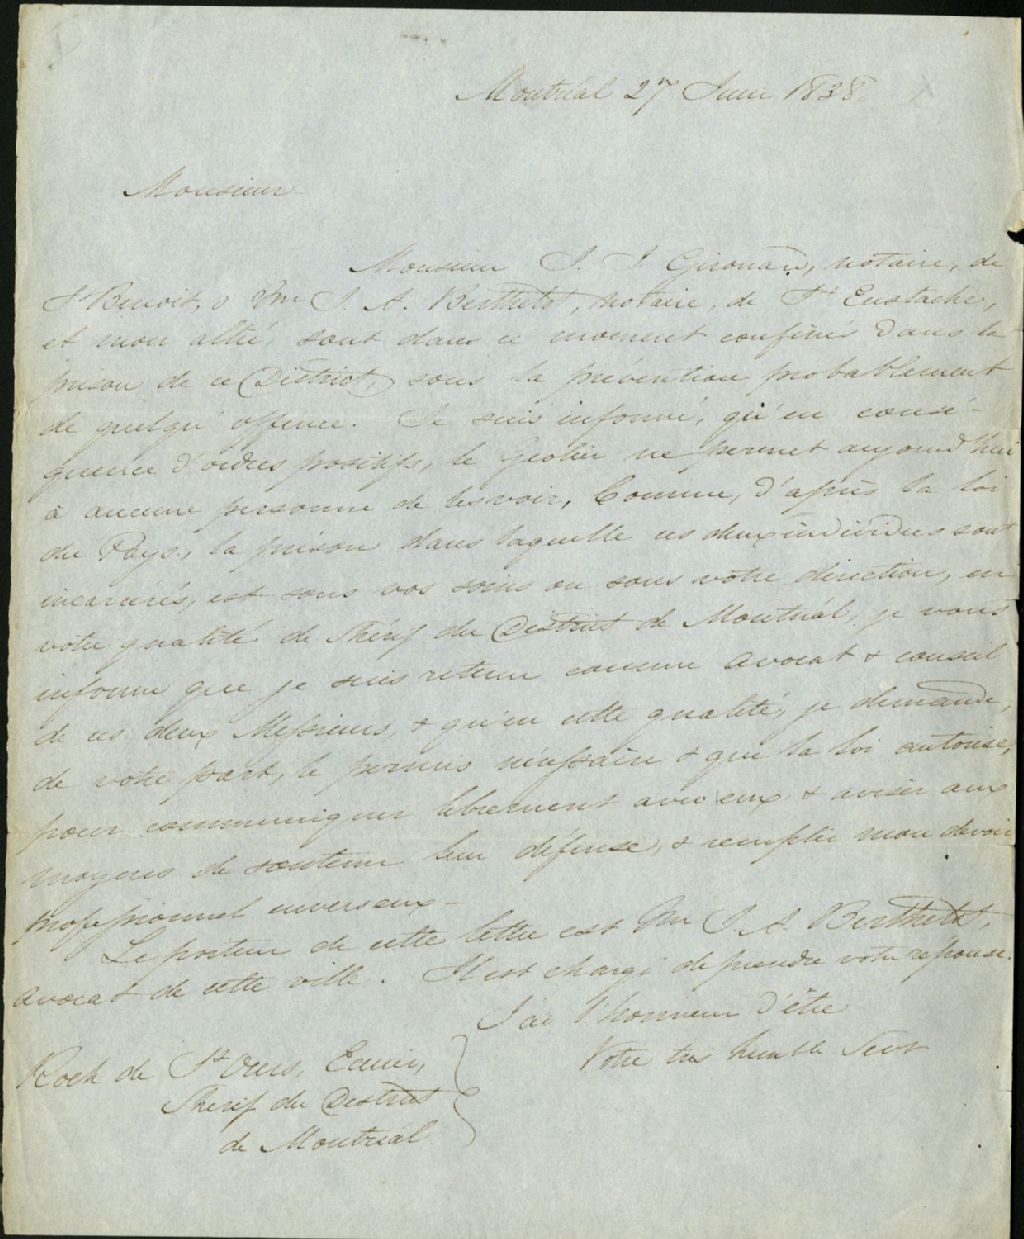 Montréal 27 Juin 1838.
Monsieur
Monsieur J. J. Girouard, notaire, de
St Benoit, & Mr J. A. Berthelot, notaire, de St Eustache,
et mon allié, sont dans ce moment confinés dans la
prison de ce District, sous la prévention probablement
de quelqu' offence. Je suis informé, qu'en consé-
quence d'ordres positifs, le Geolier ne permet aujourd'hui
à aucune personne de les voir. Comme, d'après la loi
du Pays, la prison dans laquelle ces deux individus sont
incarcérés, est sous vos soins ou sous votre direction, en
votre qualité de Shérif du District de Montréal, je vous
informe que je suis retenu comme avocat & conseil
de ces deux Messieurs, & qu'en cette qualité, je demande,
de votre part, le permis nécessaire & que la loi autorise,
pour communiquer librement avec eux & aviser aux
moyens de soutenir leur défense, & remplir mon devoir
professionnel envers eux -
Le porteur de cette lettre est Mr J. A. Berthelot,
avocat de cette ville. Il est chargé de prendre votre reponse.
J'ai l'honneur d'être
Votre très humble Servt
Roch de St Ours, Ecuier,
Sherif du District
de Montréal